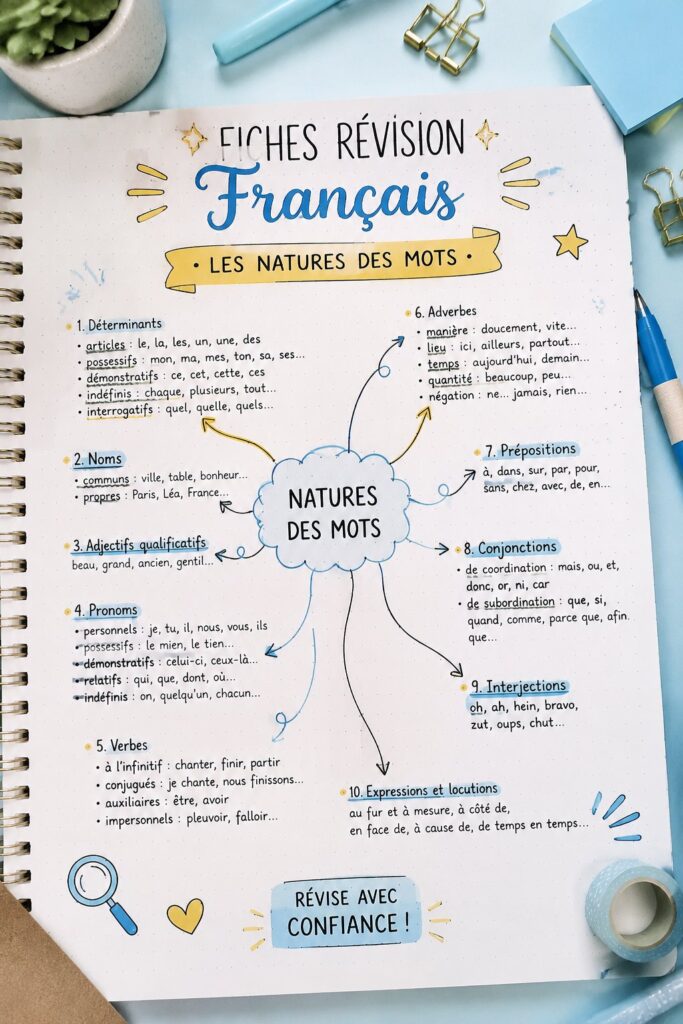 FICHES RÉVISION
Français
• LES NATURES DES MOTS •
1. Déterminants
• articles : le, la, les, un, une, des
• possessifs : mon, ma, mes, ton, sa, ses...
• démonstratifs : ce, cet, cette, ces
• indéfinis : chaque, plusieurs, tout...
• interrogatifs : quel, quelle, quels...
2. Noms
• communs : ville, table, bonheur...
• propres : Paris, Léa, France...
3. Adjectifs qualificatifs
beau, grand, ancien, gentil...
4. Pronoms
• personnels : je, tu, il, nous, vous, ils
• possessifs : le mien, le tien...
• démonstratifs : celui-ci, ceux-là...
• relatifs : qui, que, dont, où...
• indéfinis : on, quelqu'un, chacun...
5. Verbes
• à l'infinitif : chanter, finir, partir
• conjugués : je chante, nous finissons...
• auxiliaires : être, avoir
• impersonnels : pleuvoir, falloir...
NATURES
DES MOTS
6. Adverbes
• manière : doucement, vite...
• lieu : ici, ailleurs, partout...
• temps : aujourd'hui, demain...
• quantité : beaucoup, peu...
• négation : ne... jamais, rien...
7. Prépositions
à, dans, sur, par, pour,
sans, chez, avec, de, en...
8. Conjonctions
• de coordination : mais, ou, et,
donc, or, ni, car
• de subordination : que, si,
quand, comme, parce que, afin
que...
9. Interjections
oh, ah, hein, bravo,
zut, oups, chut...
10. Expressions et locutions
au fur et à mesure, à côté de,
en face de, à cause de, de temps en temps...
RÉVISE AVEC
CONFIANCE !